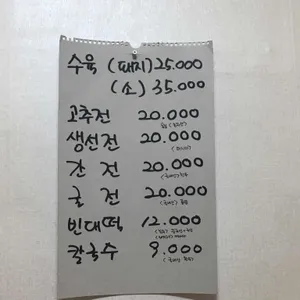 수육 (돼지) 25.000
(소) 35.000
고추전 20.000
생선전 20.000
간전 20.000
굴전 20.000
빈대떡 12.000
칼국수 9.000